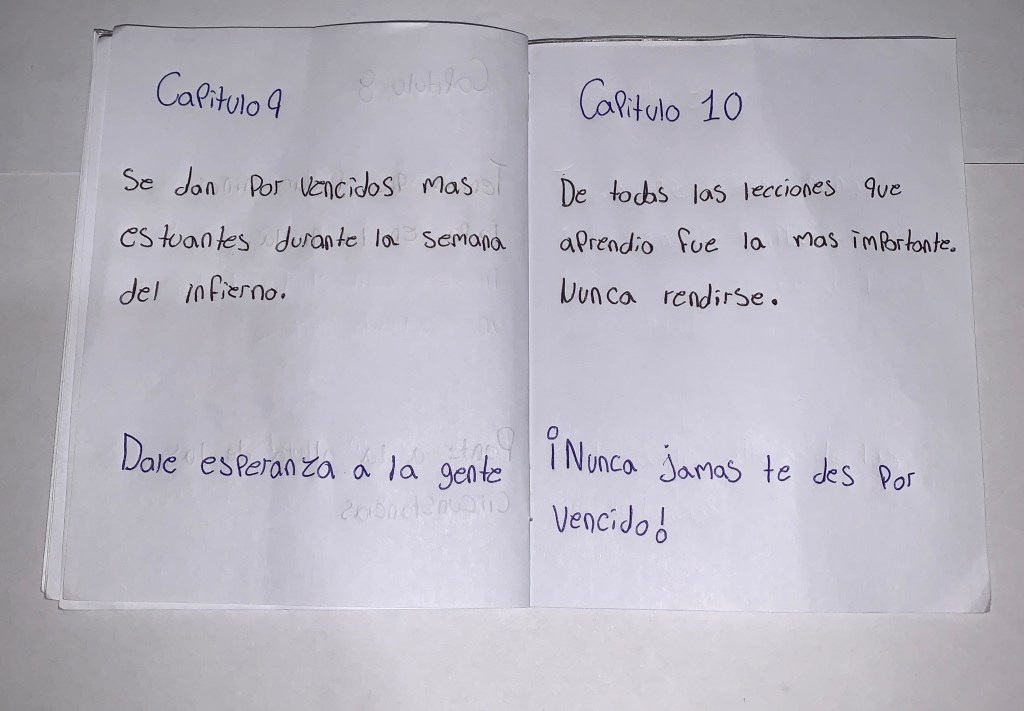 Capitulo 9
Se dan por vencidos mas
estuantes durante la semana
del infierno.
Dale esperanza a la gente
Capitulo 10
De todas las lecciones que
aprendio fue la mas importante.
Nunca rendirse.
¡Nunca jamas te des por
vencido!